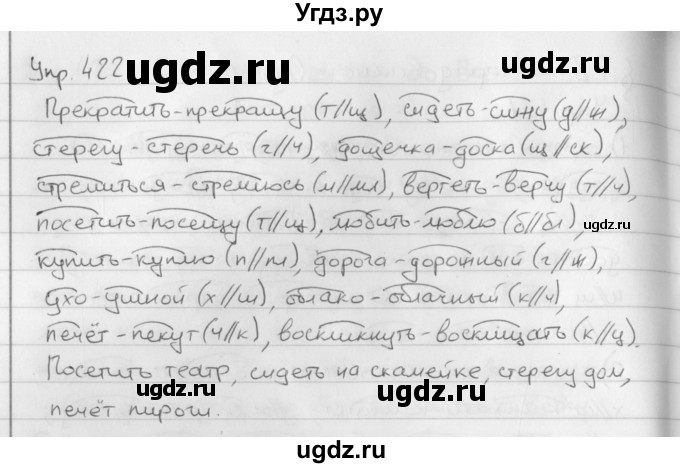 Угдз.ру
Упр. 422
ugdz.ru
ugdz.ru
Прекратить-прекращу (т//щ), сидеть-сижу (д//ж),
стерегу-стеречь (г//ч), дощечка-доска (щ//ск),
стремиться-стремлюсь (м//мл), вертеть-верчу (т//ч),
посетить-посещу (т//щ), любить-люблю (б//бл),
ugdz.ru
купить-куплю (п//пл), дорога-дорожный (г//ж),
ухо-ушной (х//ш), облако-облачный (к//ч),
ugdz.ru
печёт-пекут (ч//к), воскликнуть-восклицать (к//ц).
Посетить театр, сидеть на скамейке, стерегу дом,
ugdz.ru
печёт пироги.
ugdz.ru